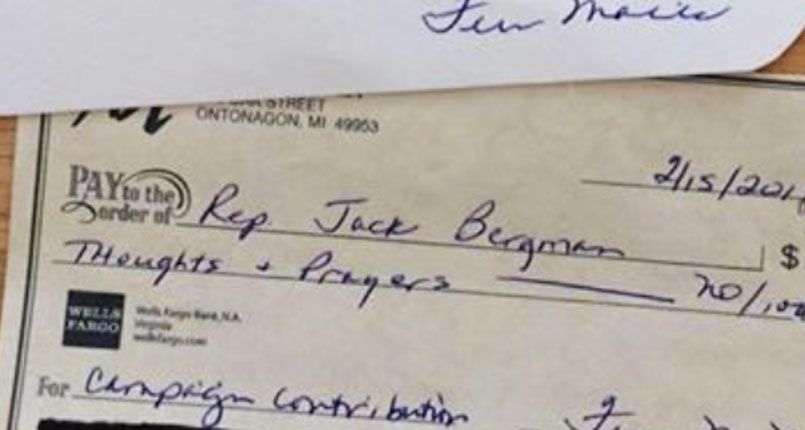 STREET
ONTONAGON, MI 49953
2/15/201
PAY to the order of Rep. Jack Bergman $
Thoughts + Prayers no/100
WELLS FARGO
Wells Fargo Bank, N.A.
Virginia
wellsfargo.com
For Campaign Contribution